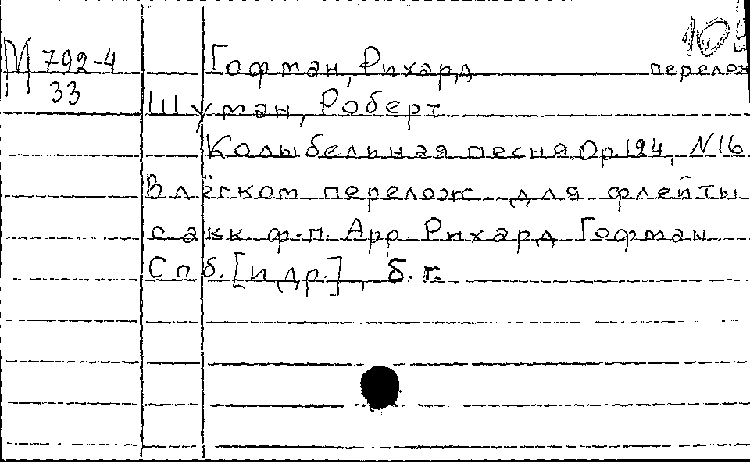 М 792-4 Гофман, Рихард перелож
33
Шуман, Роберт
Колыбельная песня Op 124, N16
В лёгком перелож для флейты
с акк ф.-п. Арр Рихард Гофман
Спб. [и др.], б. г.